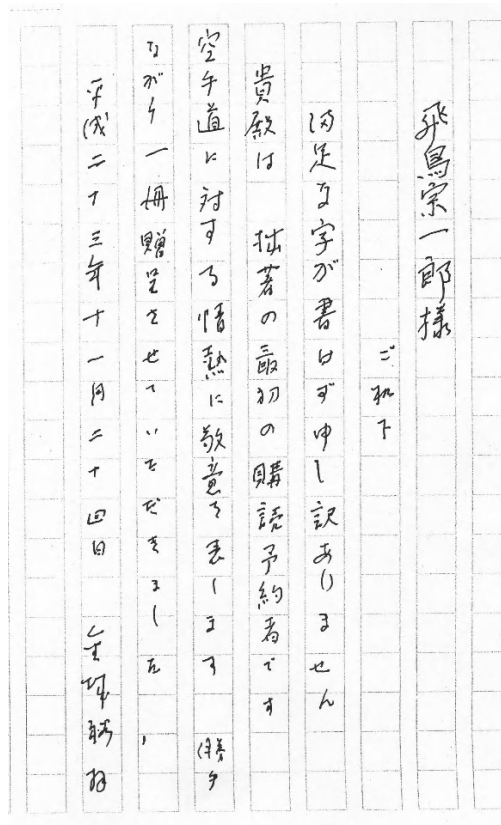 飛鳥宗一郎様
ご机下
満足な字が書けず申し訳ありません
貴殿は 拙著の最初の購読予約者です
空手道に対する情熱に敬意を表します 勝手
ながら一冊贈呈させていただきました
平成二十三年十一月二十四日 金城 拝